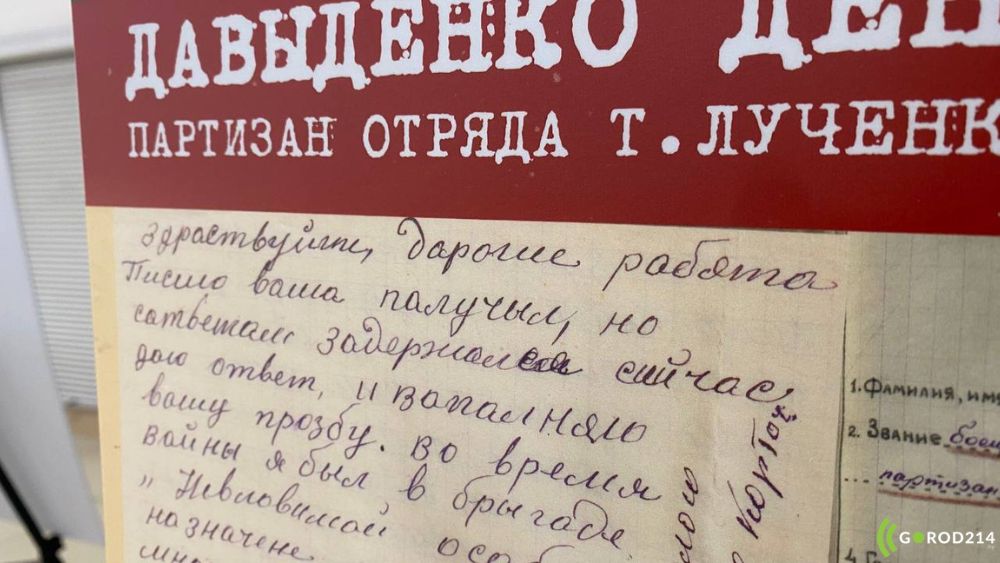 ДАВЫДЕНКО ДЕН
ПАРТИЗАН ОТРЯДА Т. ЛУЧЕНК
здраствуйте, дарогие рабята
Писмо ваша палучыл, но
сатветам задержался сийчас
даю ответ, и вапалняю
вашу прозбу. Во время
вайны я был в брыгаде
„Невловимой особ
назначене
1. Фамилия, имя
2. Звание боец
партизан
GOROD214